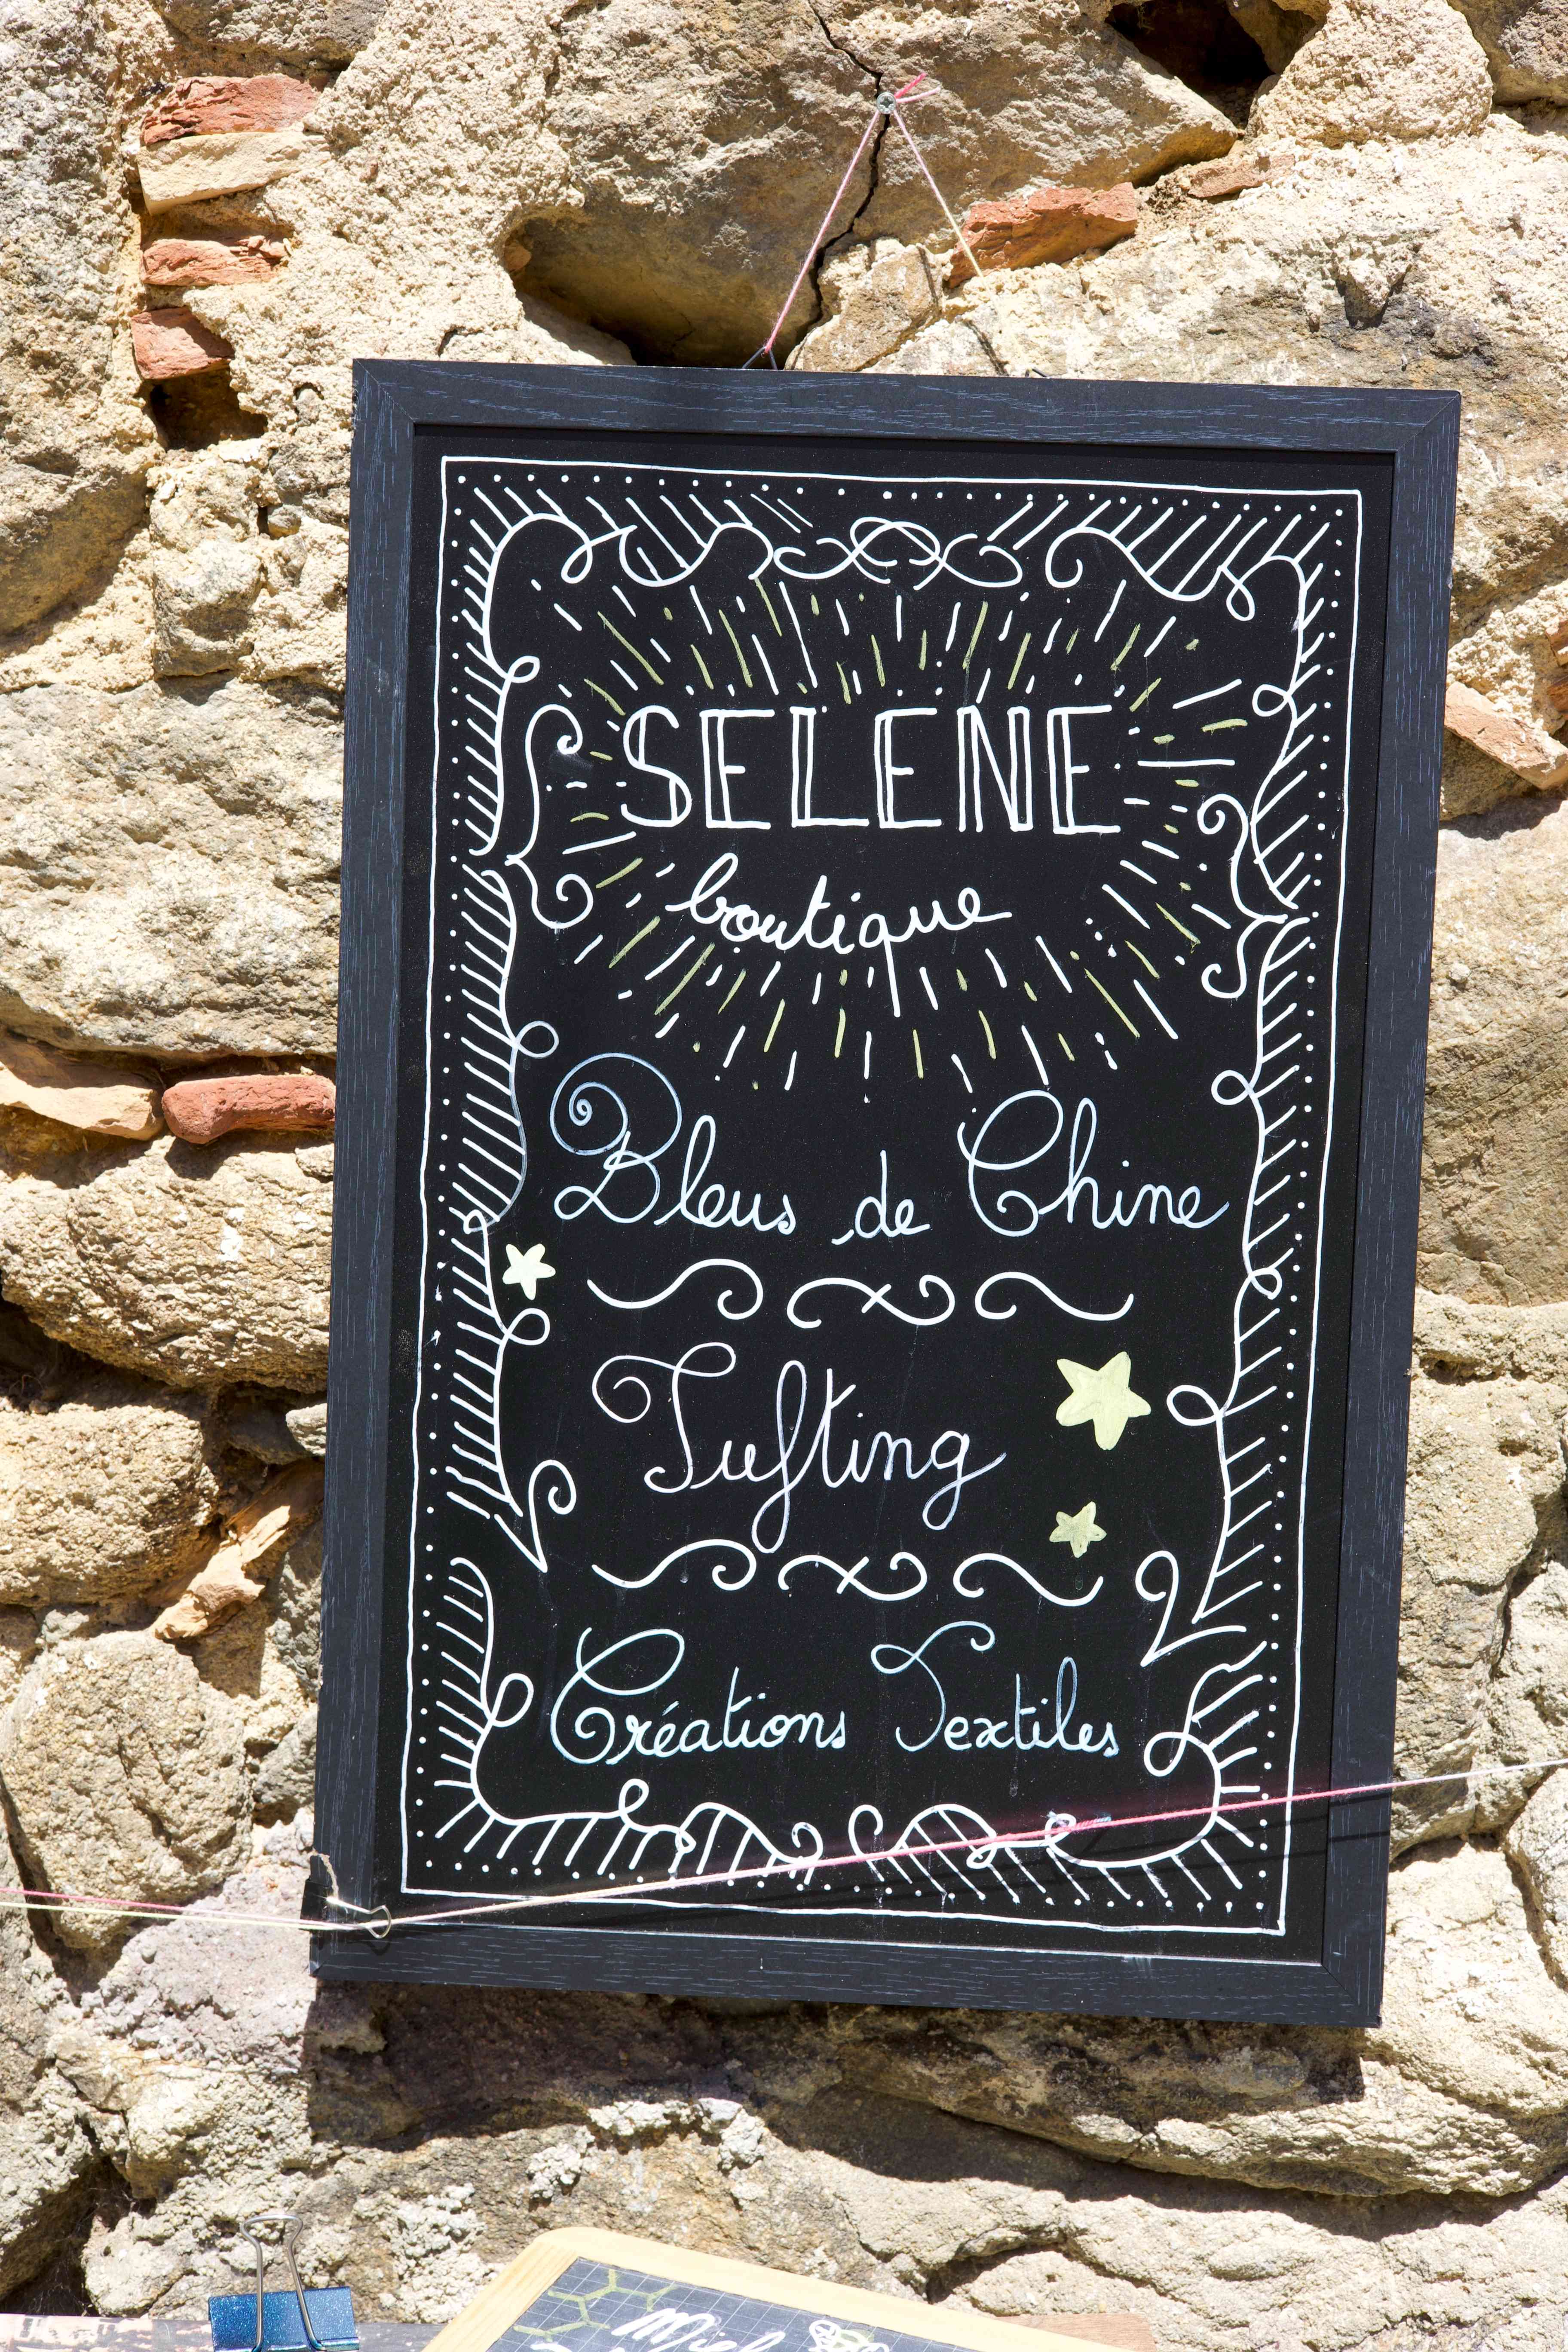 SELENE
boutique
Bleus de Chine
Tufting
Créations Textiles
Miel